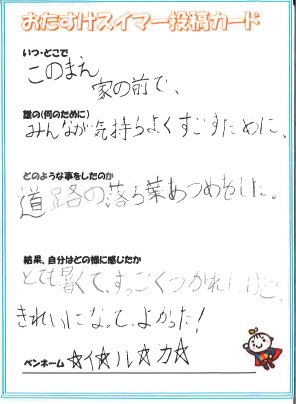 おたすけスイマー投稿カード
いつ・どこで
このまえ
家の前で、
誰の(何のために)
みんなが気持ちよくすごすために、
どのような事をしたのか
道路の落ち葉あつめをした。
結果、自分はどの様に感じたか
とても暑くて、すっごくつかれたけど、
きれいになって、よかった!
ペンネーム ☆イ☆ル☆カ☆